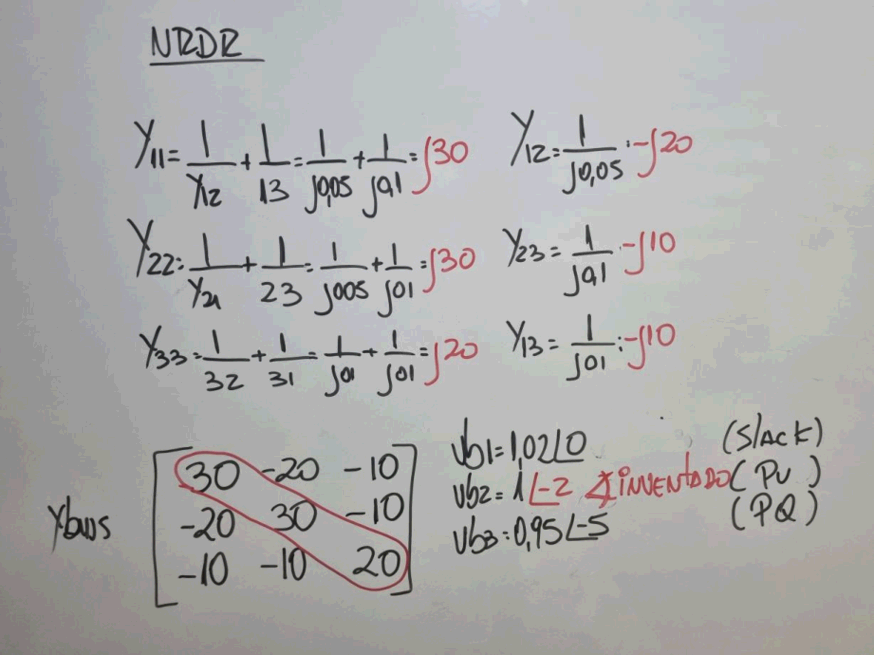 NRDR
Y11= 1/Y12 + 1/13 = 1/j0,05 + 1/j0,1 = j30 Y12= 1/j0,05 : -j20
Y22: 1/Y21 + 1/23 = 1/j005 + 1/j01 = j30 Y23= 1/j0,1 -j10
Y33= 1/32 + 1/31 = 1/j01 + 1/j01 = j20 Y13= 1/j01 : -j10
Ybus
30 -20 -10
-20 30 -10
-10 -10 20
Vb1=1,02∠0 (SlAcK)
Vb2= 1∠-2 ∡ INVENTADO (PV)
Vb3=0,95∠-5 (PQ)